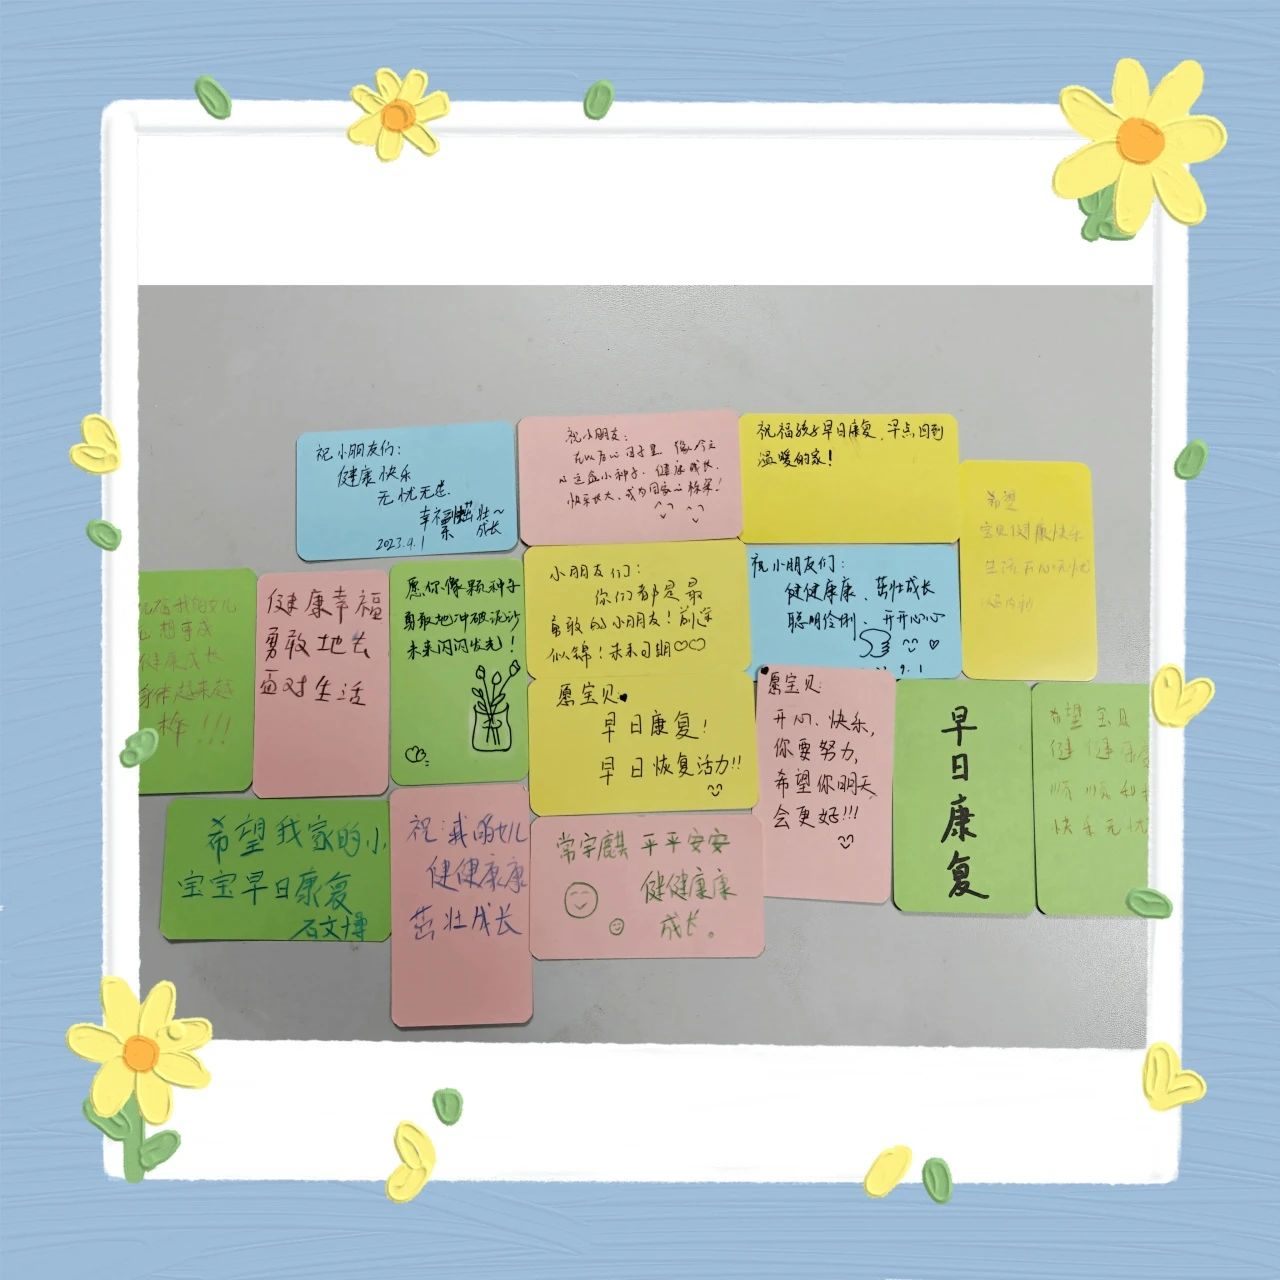 祝小朋友们:
健康快乐
无忧无虑
幸福
茁壮~
成长
2023.9.1
祝小朋友:
健康成长、
快乐长大、成为国家的栋梁!
祝福孩子早日康复,早点回到
温暖的家!
希望
宝贝健康快乐
祝小朋友们:
健健康康、茁壮成长
聪明伶俐、开开心心
9.1
小朋友们:
你们都是最
勇敢的小朋友!前途
似锦!未来可期♡♡
愿你像颗种子
勇敢地冲破泥沙
未来闪闪发光!
健康幸福
勇敢地去
面对生活
祝福我的女儿
健康成长
身体越来越
棒!!!
愿宝贝♥
早日康复!
早日恢复活力!!
愿宝贝:
开心、快乐,
你要努力,
希望你明天
会更好!!!
早日康复
希望宝贝
健健康康
顺顺利利
快乐无忧
希望我家的小
宝宝早日康复
石文博
祝:我的女儿
健健康康
茁壮成长
常宇麒 平平安安
健健康康
成长。